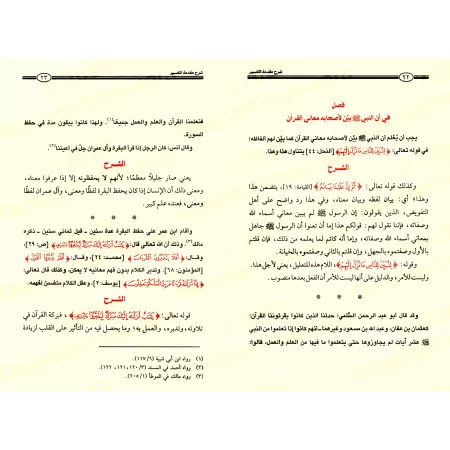 شرح مقدمة التفسير
٢٢
فصل
في أن النبي ﷺ بيّن لأصحابه معاني القرآن
يجب أن يُعلم أن النبي ﷺ بيّن لأصحابه معاني القرآن كما بيّن لهم ألفاظه؛
فقوله تعالى: ﴿لِتُبَيِّنَ لِلنَّاسِ مَا نُزِّلَ إِلَيْهِمْ﴾ [النحل: ٤٤] يتناول هذا وهذا.
الشرح
وكذلك قوله تعالى: [القيامة: ١٩]، يتضمن هذا
وهذا؛ أي: بيان لفظه وبيان معناه، وفي هذا رد واضح على أهل
التفويض، الذين يقولون: إن الرسول لم يبين معاني أسماء الله
وصفاته، فإننا نقول لهم: قولكم هذا إما أن تعنوا أن الرسول ﷺ جاهل
بمعاني أسماء الله وصفاته، وإما أنه كاتم لما يعلمه من ذلك، فإن قلتم
بالأول وصفتموه بالجهل، وإن قلتم بالثاني وصفتموه بالخيانة.
وقوله: ﴿لِتُبَيِّنَ لِلنَّاسِ مَا نُزِّلَ إِلَيْهِمْ﴾، اللام هذه للتعليل، يعني لأجل هذا،
وليست للأمر، والدليل على أنها ليست للأمر أن الفعل بعدها منصوب.
* * *
وقد قال أبو عبد الرحمن السُّلمي: حدثنا الذين كانوا يقرئوننا القرآن؛
كعثمان بن عفان، وعبد الله بن مسعود وغيرهما، أنهم كانوا إذا تعلموا من النبي
ﷺ عشر آيات لم يجاوزوها حتى يتعلموا ما فيها من العلم والعمل، قالوا:
شرح مقدمة التفسير
٢٣
فتعلمنا القرآن والعلم والعمل جميعًا(١). ولهذا كانوا يبقون مدة في حفظ
السورة.
وقال أنس: كان الرجل إذا قرأ البقرة وآل عمران جلّ في أعيننا(٢).
الشرح
يعني صار جليلًا معظمًا؛ لأنهم لا يحفظونه إلا إذا عرفوا معناه،
ومعنى ذلك أن الإنسان إذا كان يحفظ البقرة لفظًا ومعنى، وآل عمران لفظًا
ومعنى، فعنده علم كبير.
* * *
وأقام ابن عمر على حفظ البقرة عدة سنين ـ قيل ثماني سنين ـ ذكره
مالك(٣). وذلك أن الله تعالى قال: ﴿كِتَابٌ أَنزَلْنَاهُ إِلَيْكَ مُبَارَكٌ لِّيَدَّبَّرُوا آيَاتِهِ﴾ [ص: ٢٩]،
وقال: ﴿أَفَلَا يَتَدَبَّرُونَ الْقُرْآنَ﴾ [محمد: ٢٤]، وقال: ﴿أَفَلَمْ يَدَّبَّرُوا الْقَوْلَ﴾
[المؤمنون: ٦٨]، وتدبر الكلام بدون فهم معانيه لا يمكن، وكذلك قال تعالى:
﴿إِنَّا أَنزَلْنَاهُ قُرْآنًا عَرَبِيًّا لَّعَلَّكُمْ تَعْقِلُونَ﴾ [يوسف: ٢]، وعقل الكلام متضمن لفهمه.
الشرح
قوله تعالى: ﴿كِتَابٌ أَنزَلْنَاهُ إِلَيْكَ مُبَارَكٌ لِّيَدَّبَّرُوا آيَاتِهِ﴾، فبركة القرآن في
تلاوته، وتدبره، والعمل به؛ وما يحصل فيه من التأثير على القلب لزيادة
(١) رواه ابن أبي شيبة (٦/١١٧).
(٢) رواه أحمد في المسند (٣/١٢٠، ١٢١، ١٢٢).
(٣) رواه مالك في الموطأ (١/٢٠٥).